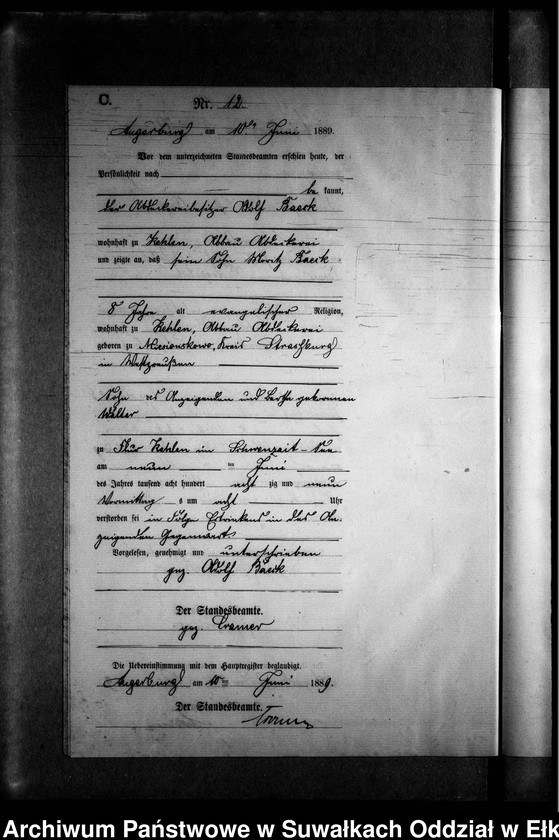 C.
Nr. 12.
Angerburg am 10ten Juni 1889.
Vor dem unterzeichneten Standesbeamten erschien heute, der
Persönlichkeit nach
be kannt,
der Abdeckereibesitzer Adolf Baeck
wohnhaft zu Kehlen, Abbau Abdeckerei
und zeigte an, daß sein Sohn Moritz Baeck
8 Jahre alt evangelischer Religion,
wohnhaft zu Kehlen, Abbau Abdeckerei
geboren zu Kreis Strasburg
in Westpreußen
Sohn des Anzeigenden und geborenen
zu Flur Kehlen im Schwenzait-See
am neun ten Juni
des Jahres tausend acht hundert acht zig und neun
Vormittag s um acht Uhr
verstorben sei in Folge Ertrinkens in des An-
zeigenden Gegenwart.
Vorgelesen, genehmigt und unterschrieben
gez. Adolf Baeck
Der Standesbeamte.
gez. Cramer
Die Uebereinstimmung mit dem Hauptregister beglaubigt.
Angerburg am 10ten Juni 1889.
Der Standesbeamte.
Cramer
Archiwum Państwowe w Suwałkach Oddział w Ełk